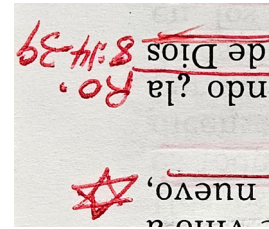 nuevo,
¿la Ro.
de Dios 8:14-39